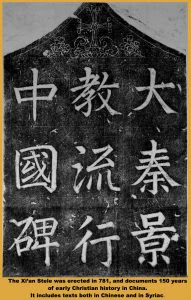 大秦景
教流行
中國碑
The Xi'an Stele was erected in 781, and documents 150 years
of early Christian history in China.
It includes texts both in Chinese and in Syriac.